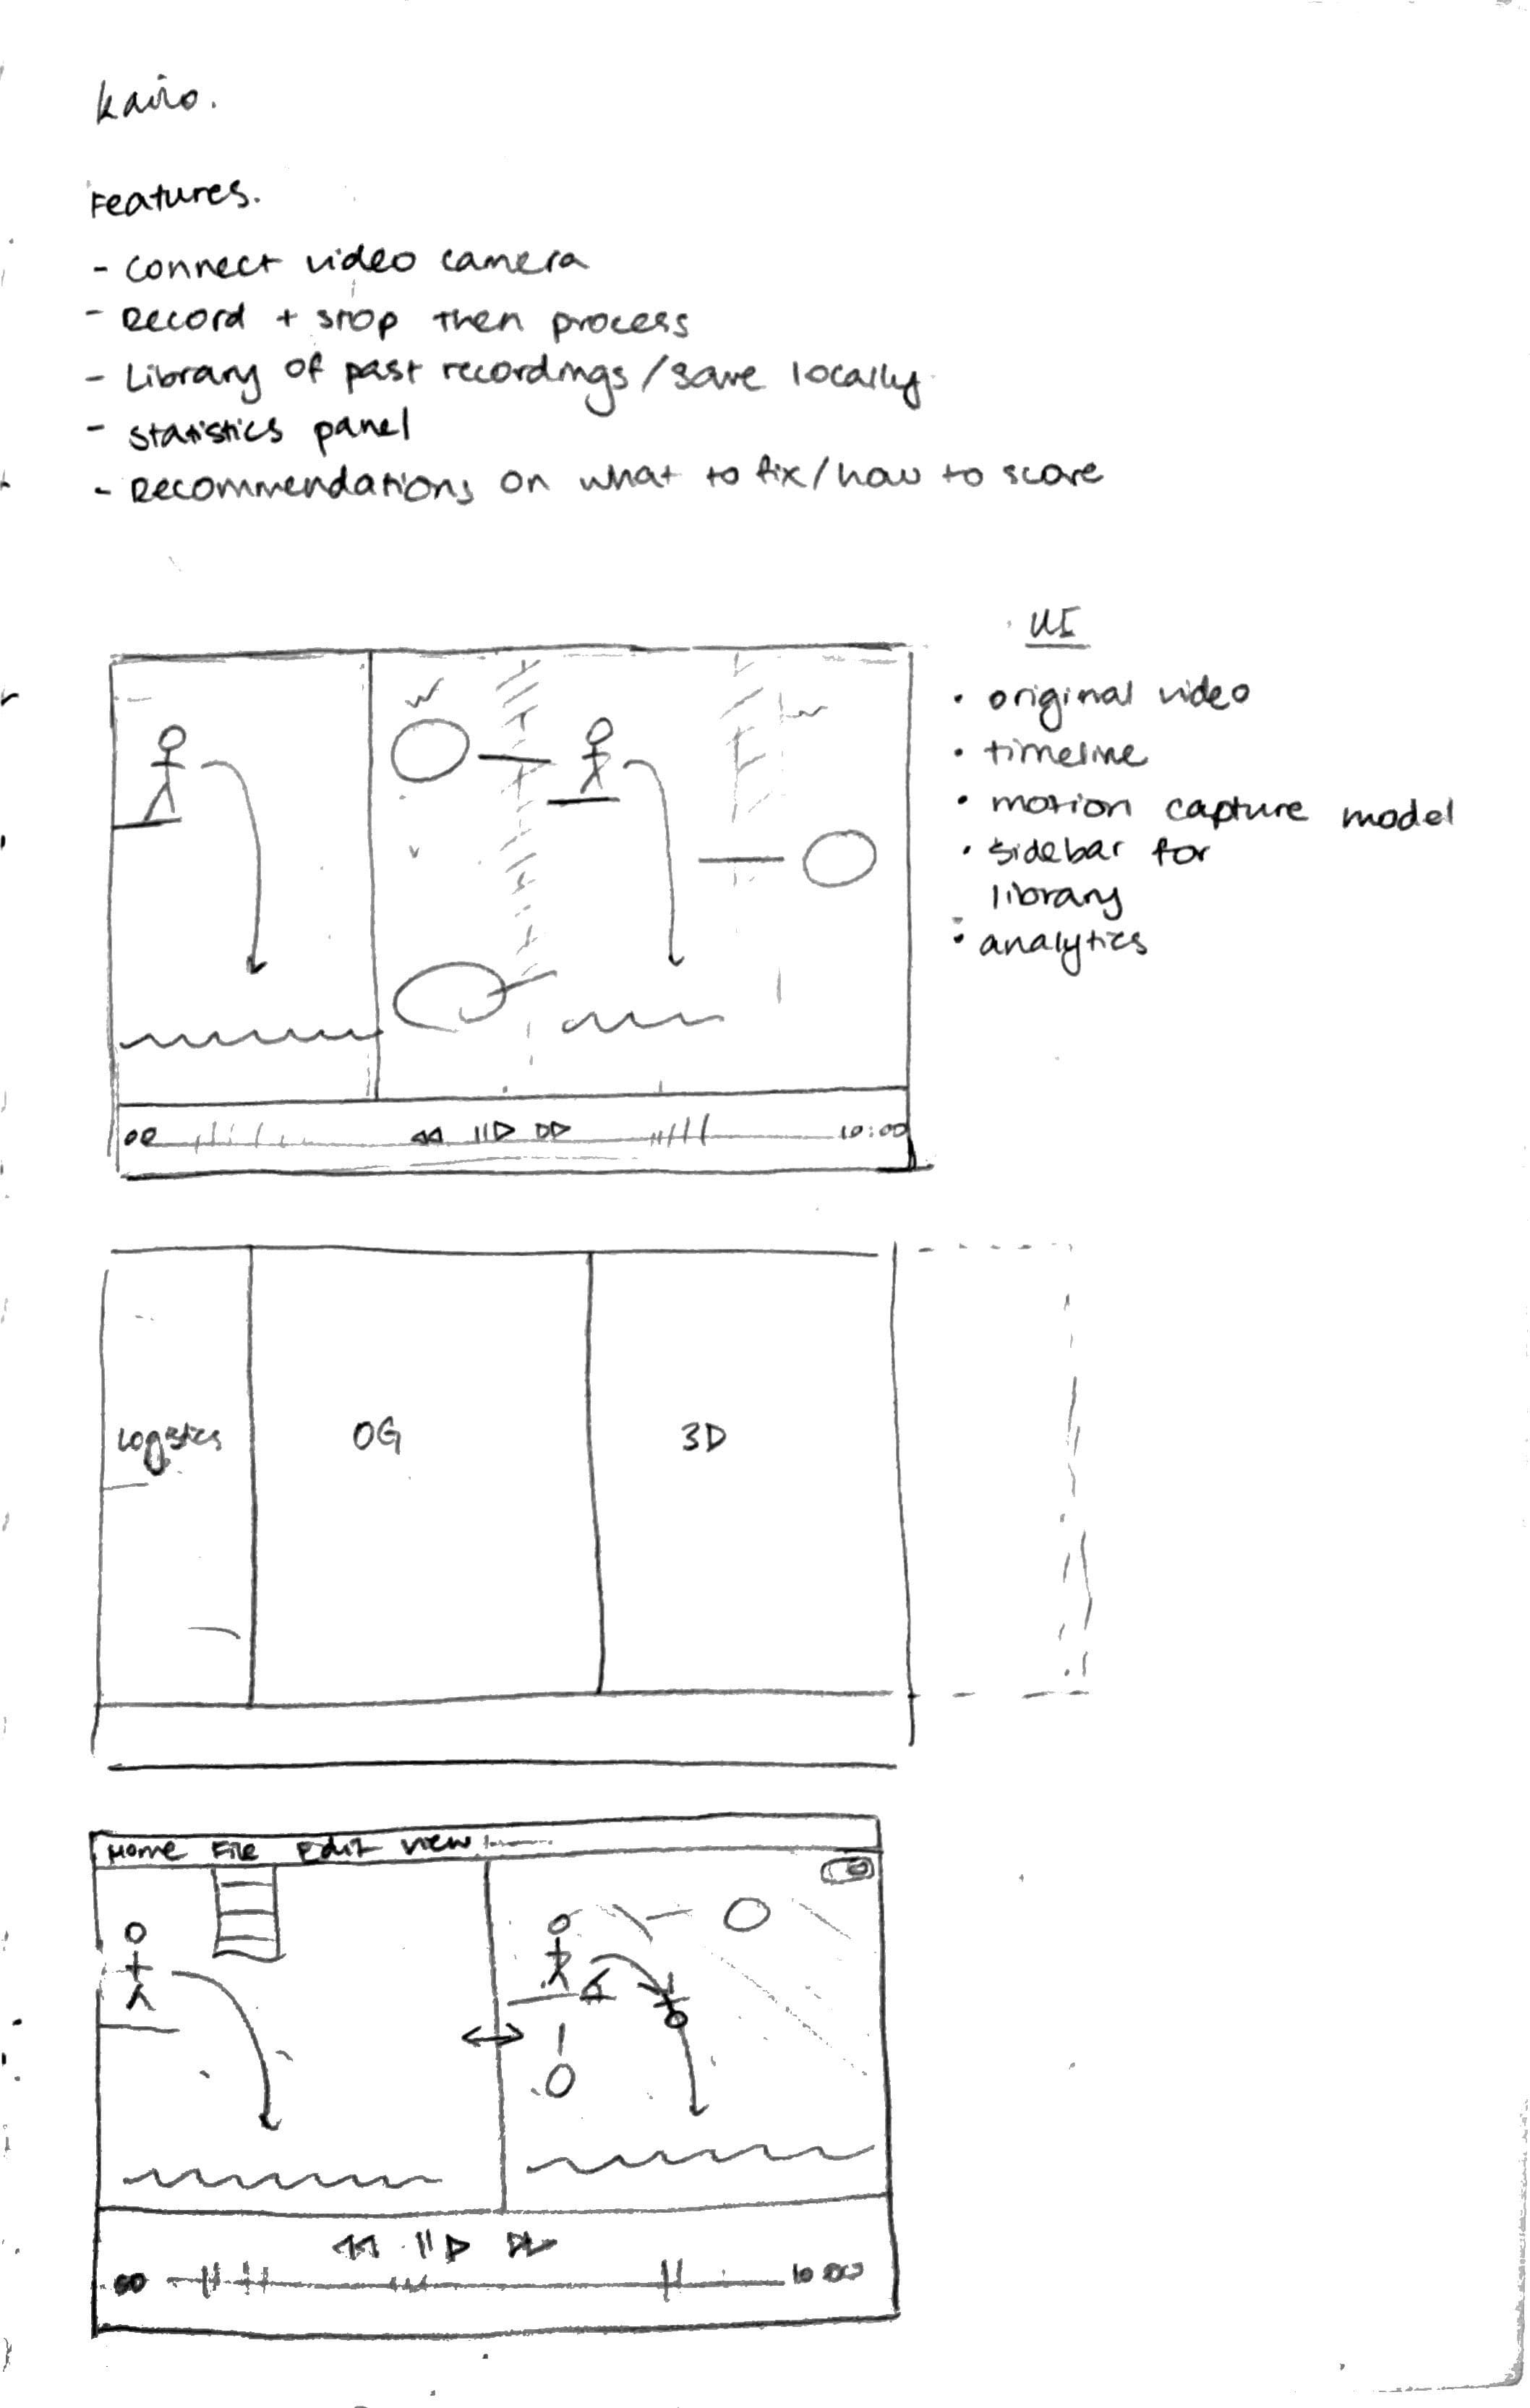 kairo.
Features.
- connect video camera
- Record + stop then process
- Library of past recordings/save locally
- statistics panel
- Recommendations on what to fix/how to score
UI
• original video
• timeline
• motion capture model
• sidebar for
library
• analytics
00 10:00
Logistics OG 3D
Home File Edit View
00 10:00